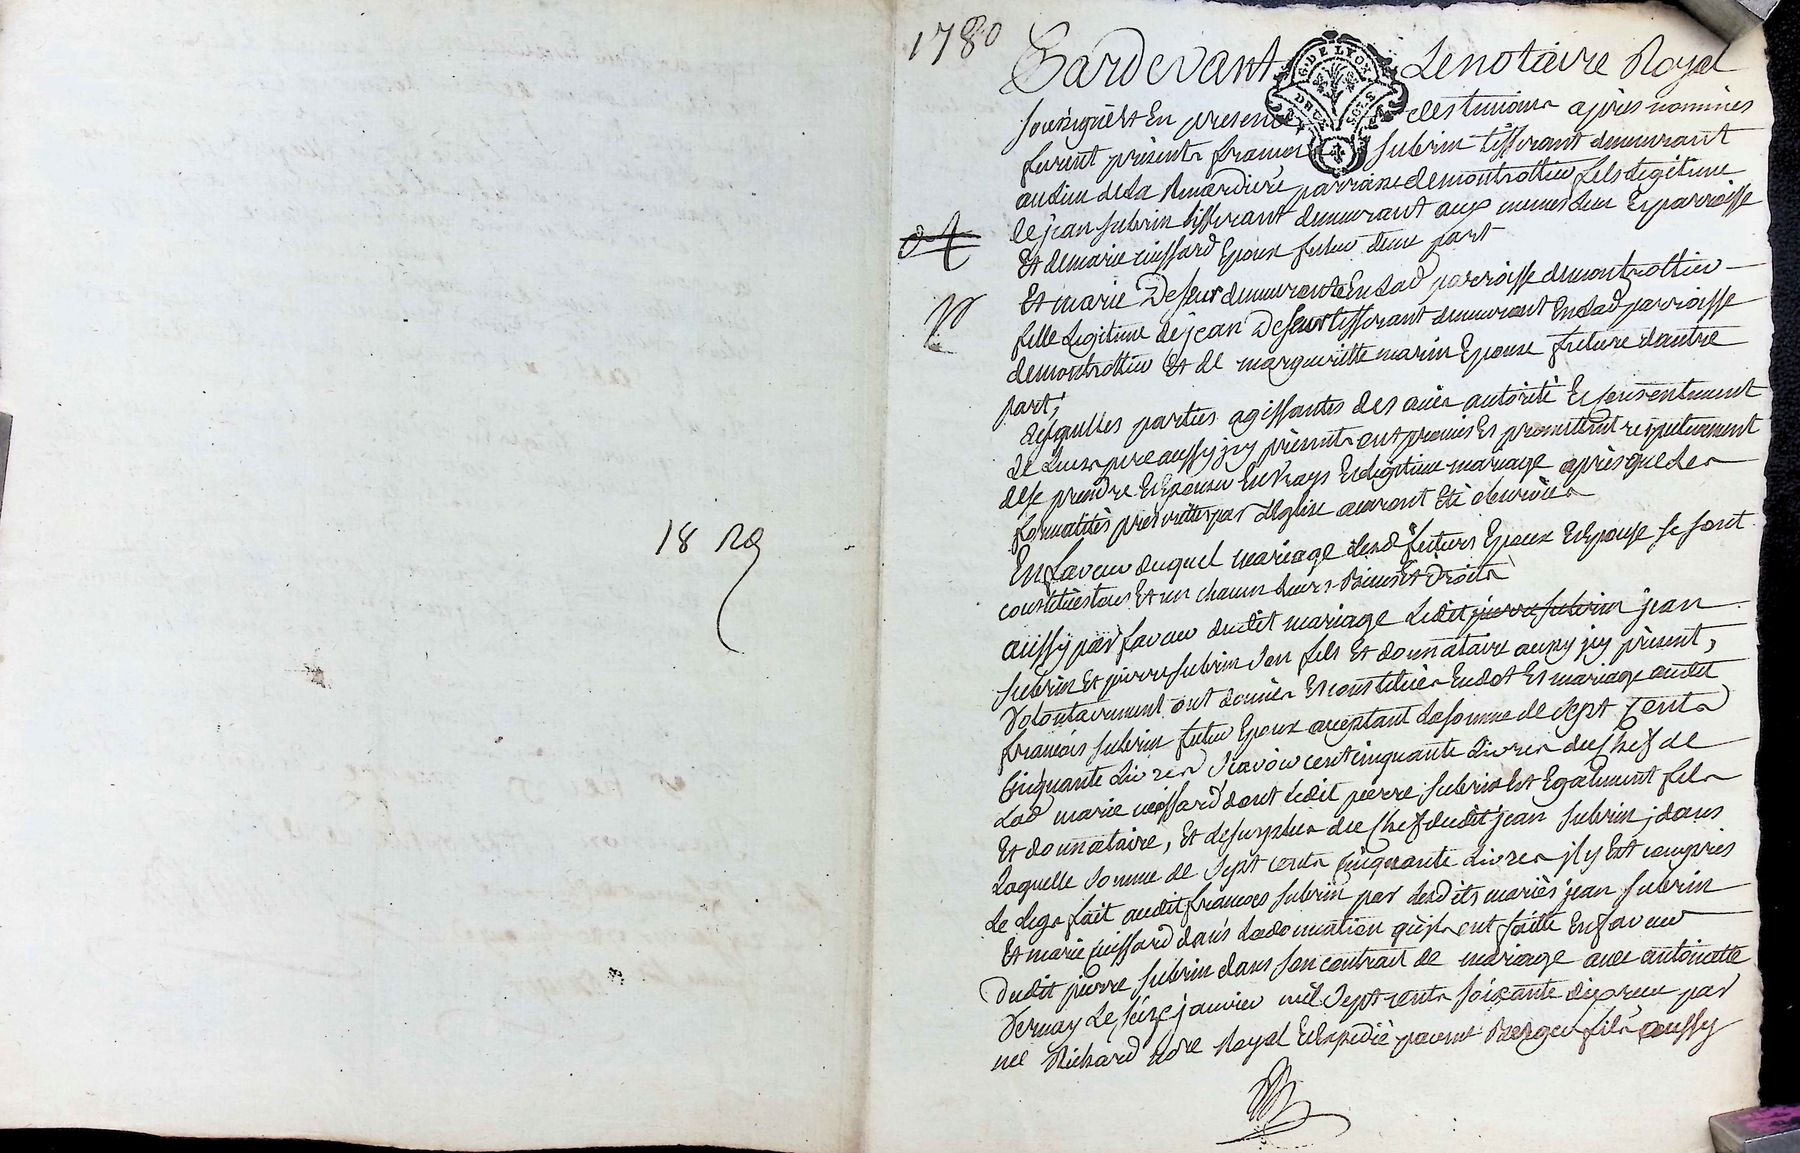 1780
Pardevant Le notaire Royal
G. DE LYON
DEUX SOLS
soussigné et En presence des temoins après nommés
furent présents francois Subrin tisserant demeurant
au lieu de la parroisse de montrottier fils légitime
de jean Subrin tisserant demeurant aux memes lieu Et parroisse
Et de marie cuissard Epoux futur d'une part
Et marie Deseur demeurante En lad parroisse de montrottier
fille Legitime de jean Deseur tisserant demeurant En lad parroisse
de montrottier Et de margueritte marin Epouse future d'autre
part;
desquelles parties agissantes des avis autorité Et consentement
de Leurs pere aussy icy présents ont promis Et promettent respectivement
de se prendre Et Epouser En vrays Et légitime mariage après que les
formalités prescrittes par L'Eglise auront été observées
En faveur duquel mariage lesd futurs Epoux Et Epouse se sont
constitués tous Et un chacun Leurs Biens Et Droits
18 Rg
aussy par faveur dudit mariage Ledit pierre Subrin jean
Subrin Et pierre Subrin son fils Et donnataire aussy icy présent,
Volontairement ont donnés Et constitués En dot Et mariage audit
francois Subrin futur Epoux acceptant La somme de Sept Cents
Cinquante Livres Scavoir cent cinquante Livres du Chef de
Lad marie cuissard dont Ledit pierre Subrin Est Egalement fils
Et donnataire, Et le surplus du Chef dudit jean Subrin, dans
Laquelle Somme de Sept cents Cinquante Livres il y Est compris
Le Legs fait audit francois Subrin par Lesdits mariés jean Subrin
Et marie Cuissard dans La donnation qu'ils ont faitte En faveur
Dudit pierre Subrin dans son contrat de mariage avec antoinette
Vernay Le seize janvier mil Sept cents soixante par
me Richard nore Royal Et Expedié par me Berger fils aussy